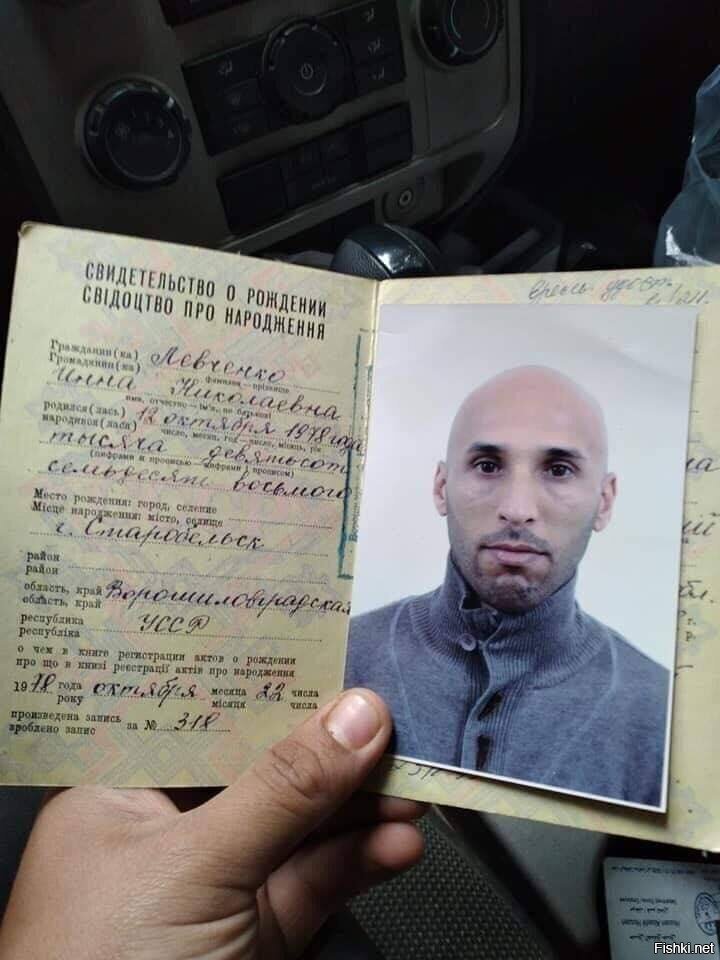 СВИДЕТЕЛЬСТВО О РОЖДЕНИИ
СВІДОЦТВО ПРО НАРОДЖЕННЯ
Гражданин(ка) Левченко
Громадянин(ка)
фамилия — прізвище
Инна Николаевна
имя, отчество — ім'я, по батькові
родился(лась) 12 октября 1978 года
народився(лася)
число, месяц, год — число, місяць, рік
тысяча девятьсот
(цифрами и прописью — цифрами і прописом)
семьдесят восьмого
Место рождения: город, селение
Місце народження: місто, селище
г. Старобельск
район
район
область, край Ворошиловградская
область, край
республика УССР
республіка
о чем в книге регистрации актов о рождении
про що в книзі реєстрації актів про народження
1978 года октября месяца 22 числа
року місяця числа
произведена запись за № 318
зроблено запис
Fishki.net